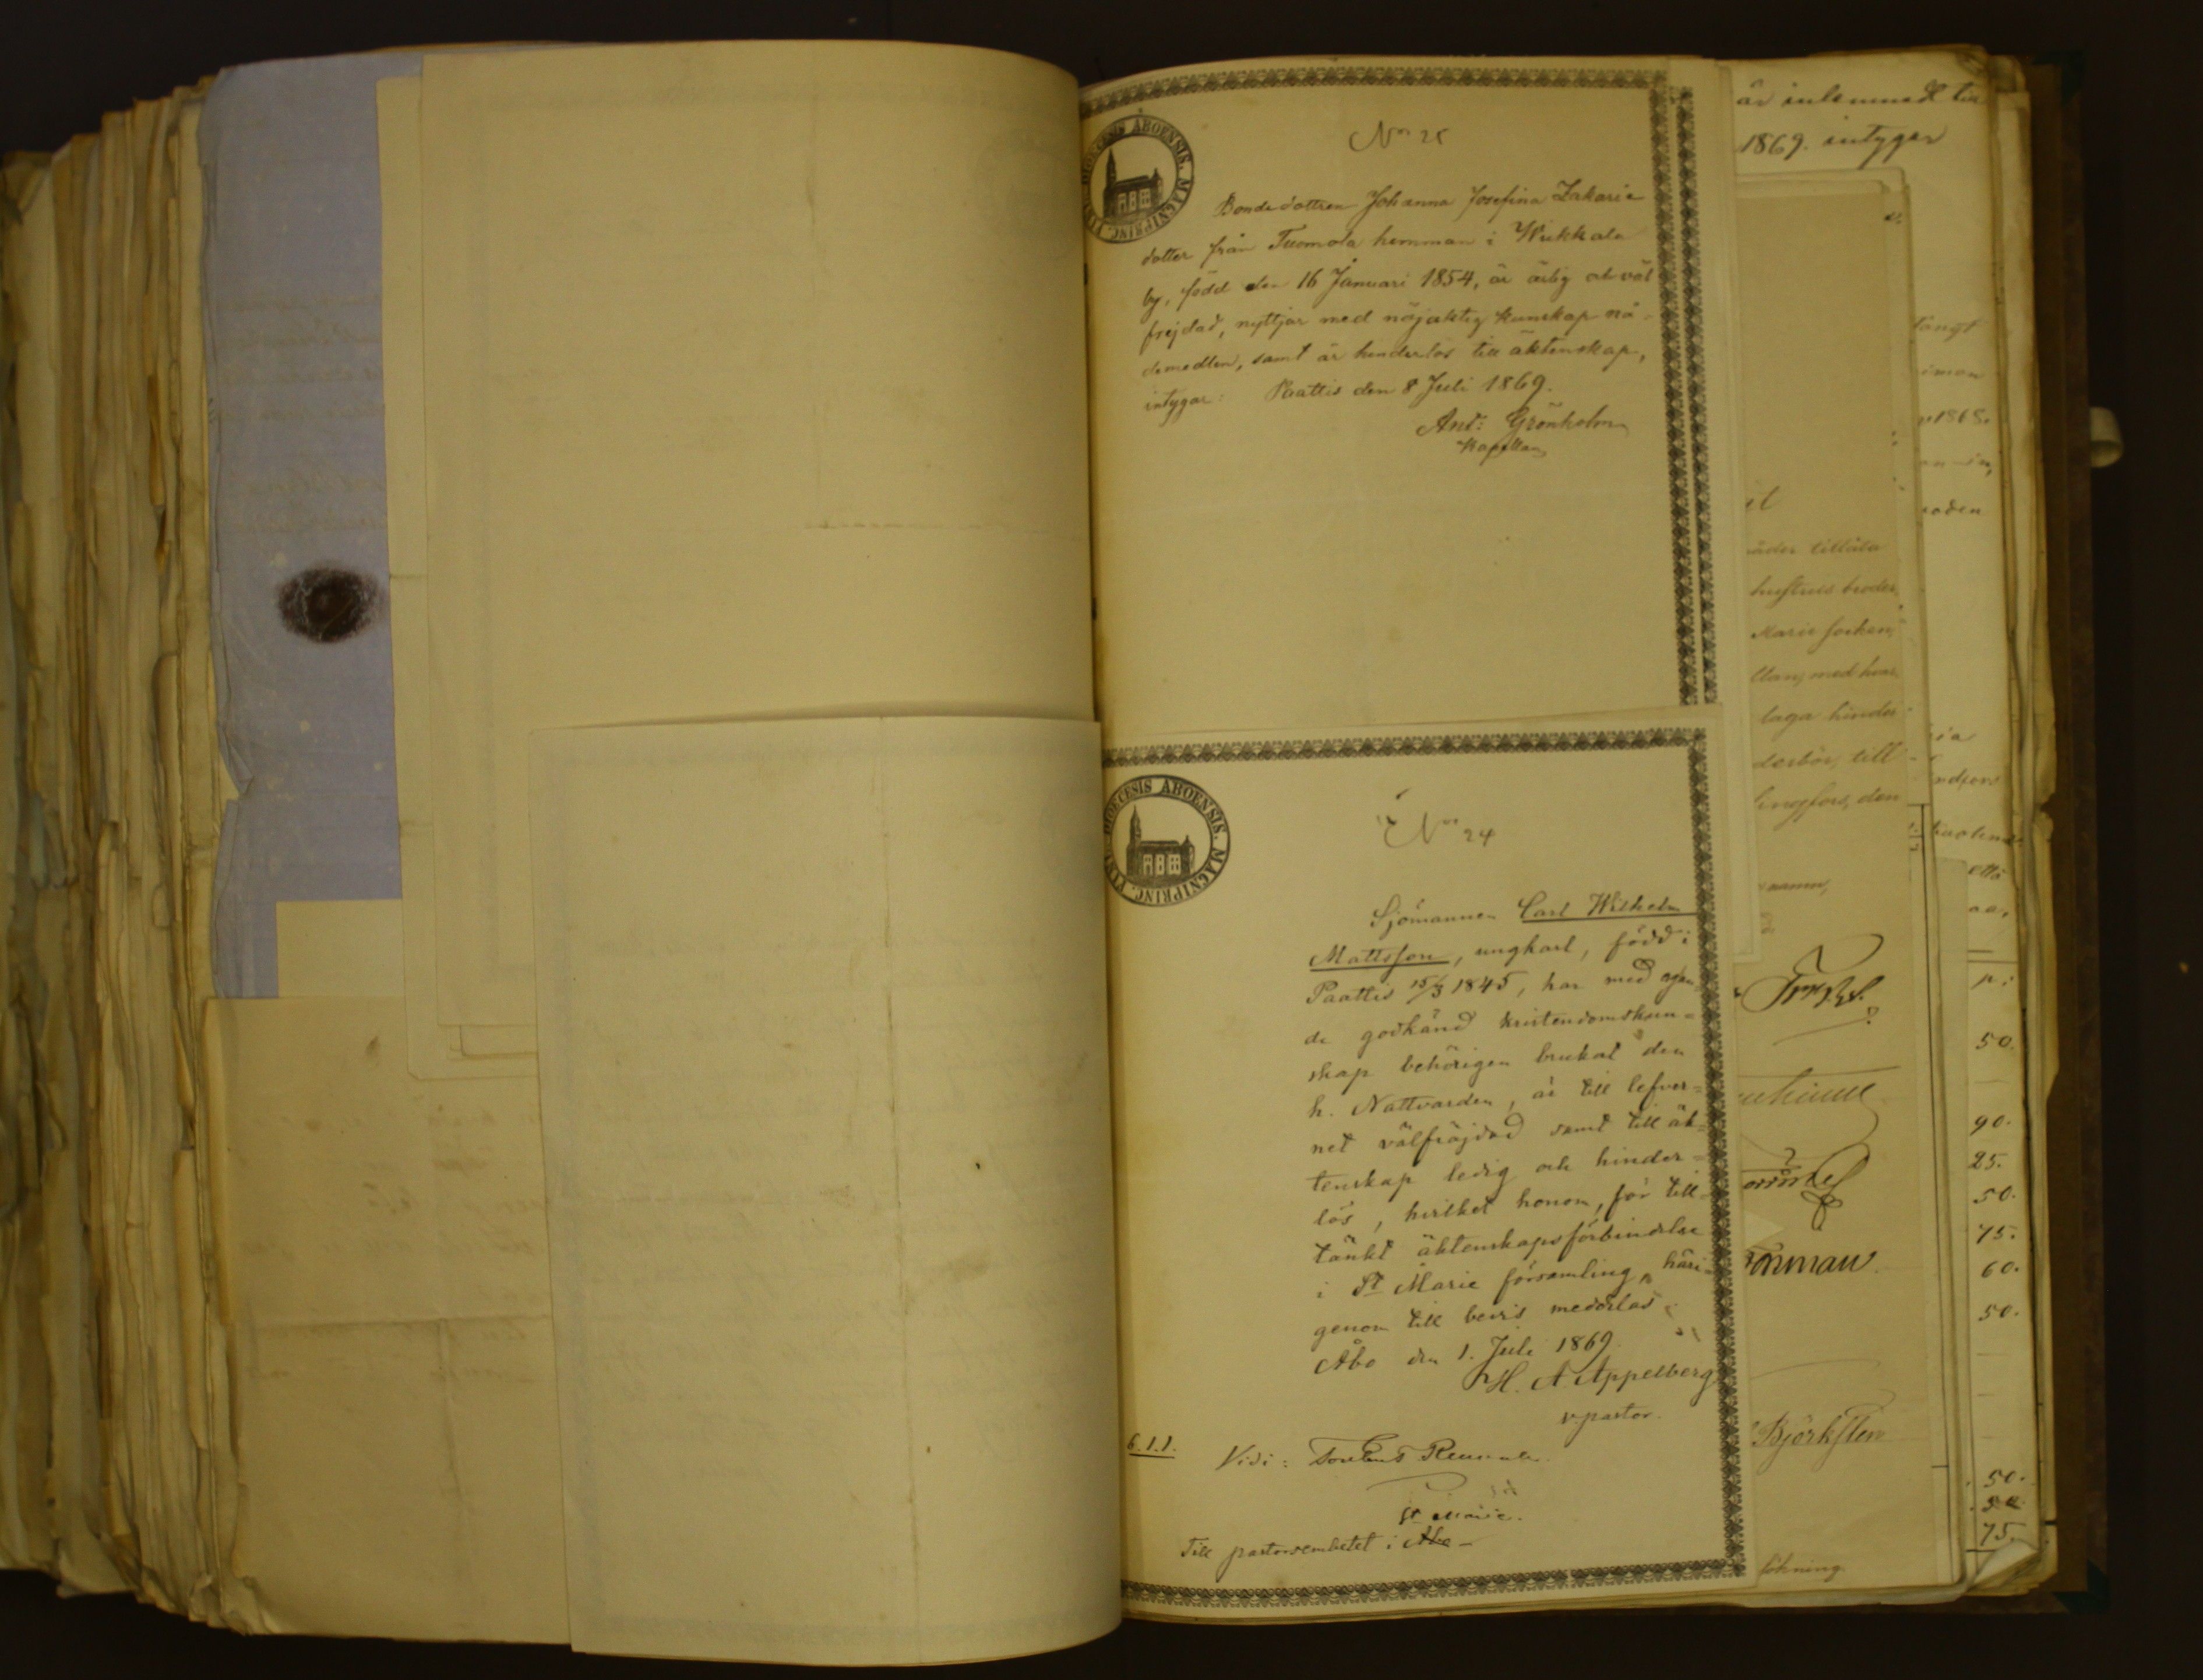 DIOECESIS ABOENSIS. MAGNI PRINC.
No 25
Bondedottren Johanna Josefina Zakarie
dotter från Tuomola hemman i Wiikkala
by, född den 16 Januari 1854, är ärlig och väl
frejdad, nyttjar med nöjaktig kunskap nå-
demedlen, samt är hinderlös till äktenskap,
intygar: Paattis den 8 Juli 1869.
Ant: Grönholm
Kapellan
DIOECESIS ABOENSIS. MAGNI PRINC.
No 24
Sjömannen Carl Wilhelm
Mattsson, ungkarl, född i
Paattis 15/3 1845, har med ägan-
de godkänd kristendomskun=
skap behörigen brukat den
h. Nattvarden, är till lefver=
net välfräjdad samt till äk=
tenskap ledig och hinder=
lös, hvilket honom, för till-
tänkt äktenskapsförbindelse
i St Marie församling, häri-
genom till bevis meddelas.
Åbo den 1. Juli 1869.
H. A. Appelberg
v. pastor.
6.1.1.
Vidi:
St Marie.
Till pastorsembetet i Åbo
är inlemnadt till
1869. intyger
tillåta
Marie socken,
med hvar
laga hinder
till
den
Björksten
p:
50.
90.
25.
50.
75.
60.
50.
50.
50.
75.